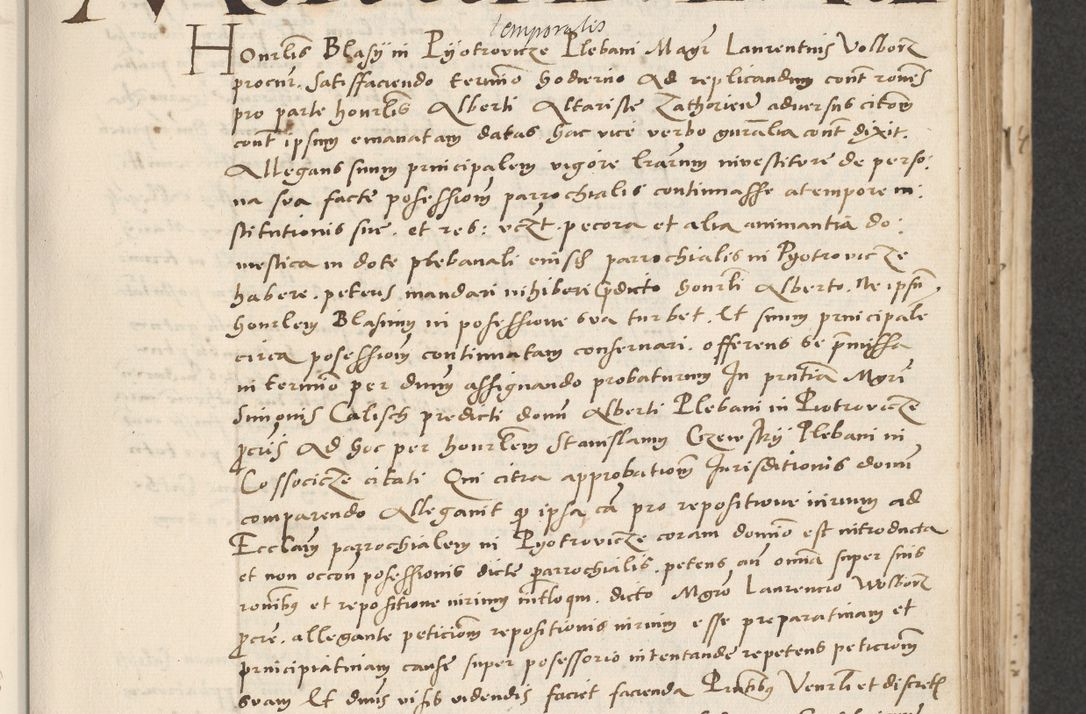 temporalis
Honrlis Blasy in Pyotrovicze Plebani Magr Laurentius Volborz
procur. Satisfaciendo termino hodierno Ad replicandum cont rones
pro parte honrlis Alberti Altariste Zathorien adversus citom
cont ipsum emanatam datas hac vice verbo gnralia cont dixit.
Allegans suum principalem vigore lrarum investiture de perso:
na sva facte posessiom parrochialis continuasse a tempore in:
stitutionis sue. et res: vczt. pecora et alia animantia do:
mestica in dote plebanali eiusd parrochialis in Pyotrovicze
habere. petens mandari inhiberi pdicto honrli Alberto. Ne ipsum
honrlem Blasium in posessione sva turbet. Et suum principale
circa posessiom continuatam conservari. offerens se pmissa
in termino per dnum assignando probaturum In pntia Mgri
Simonis Calisch predicti domi Alberti Plebani in Piotrovicze
pcris Ad hoc per honrlem Stanislaum Czewskij Plebani in
Cossocicze citati Qui citra approbatiom Jurisditionis domi
comparendo Allegavit q ipsa ca pro repositione nirium ad
Ecclam parrochialem in Pyotrovicze coram domino est introducta
et non occon posessionis dicte parrochialis. petens an omia super suis
ronibus et repositione nirium intloqui. dicto Mgro Laurencio Wolborz
pcre. allegante peticiom repositionis nirium esse preparativam et
principiativam cause super posessorio intentande repetens peticiom
svam Et dnus visis videndis faciet facienda Pntibus Venrli et discret